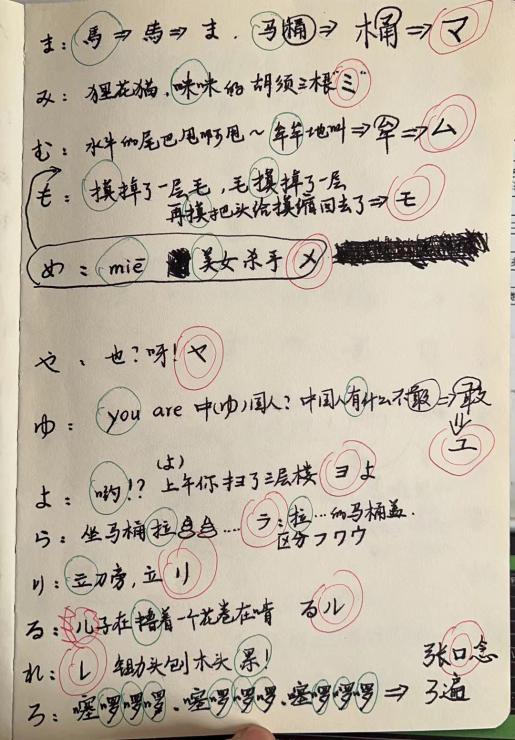 ま：馬⇒馬⇒ま．马桶⇒桶⇒マ
み：狸花猫，咪咪的胡须三根"ミ"
む：水牛的尾巴甩啊甩～牟牟地叫⇒牟⇒ム
も：摸掉了一层毛，毛摸掉了一层
再摸把头给摸缩回去了⇒モ
め：miē 美女杀手メ
や：也？呀！ヤ
ゆ：you are 中(ゆ)国人？中国人有什么不敢⇒敢
⇓
ユ
(よ)
よ：哟!? 上午你扫了三层楼 ヨよ
ら：坐马桶拉……ラ：拉…的马桶盖．
区分フワウ
り：立刀旁，立リ
る：儿子在撸着一个花卷在啃 るル
れ：レ 锄头刨木头累！
ろ：嘡啰啰啰、嘡啰啰啰、嘡啰啰啰⇒
张口念
3遍